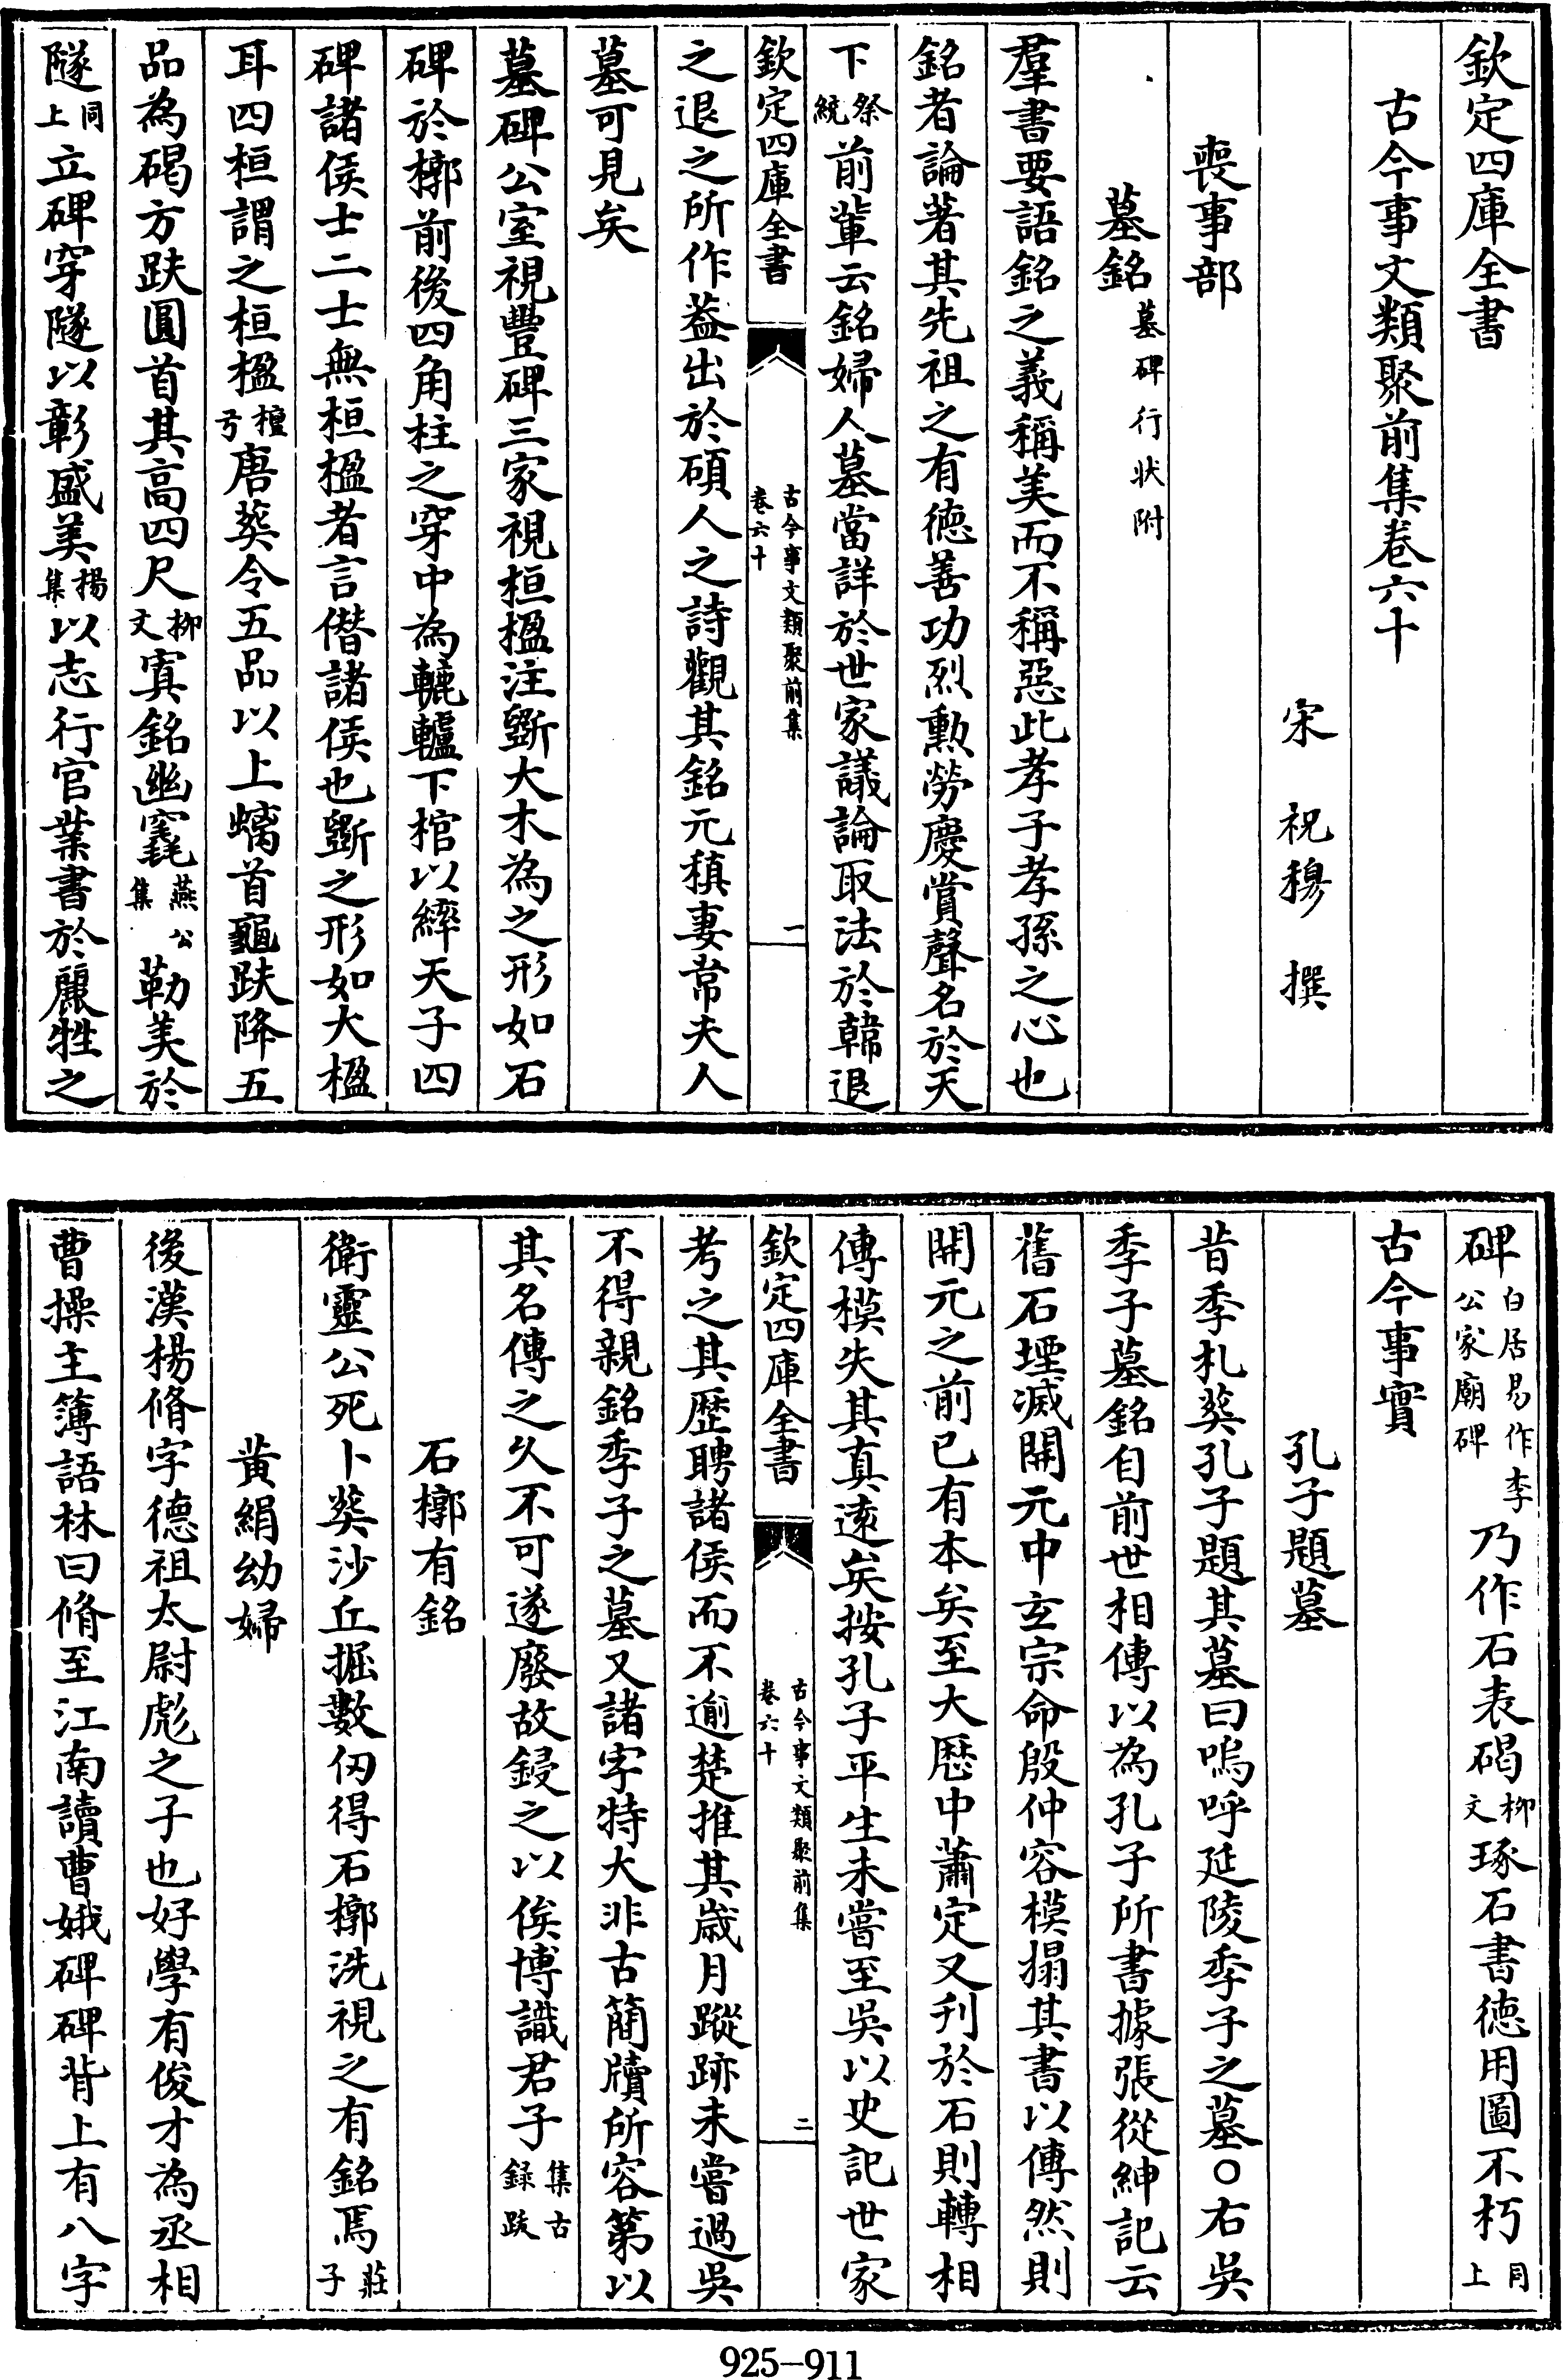 欽定四庫全書
古今事文類聚前集卷六十
宋　祝穆　撰
喪事部
墓銘墓碑行狀附
羣書要語銘之義稱美而不稱惡此孝子孝孫之心也
銘者論著其先祖之有德善功烈勲勞慶賞聲名於天
下祭統前輩云銘婦人墓當詳於世家議論取法於韓退
欽定四庫全書　古今事文類聚前集卷六十　一
之退之所作葢出於碩人之詩觀其銘元稹妻韋夫人
墓可見矣
墓碑公室視豐碑三家視桓楹注斵大木為之形如石
碑於槨前後四角柱之穿中為轆轤下棺以繂天子四
碑諸侯士二士無桓楹者言僭諸侯也斵之形如大楹
耳四桓謂之桓楹檀弓唐葬令五品以上螭首龜趺降五
品為碣方趺圓首其高四尺柳文寘銘幽竁燕公集勒美於
隧同上立碑穿隧以彰盛美楊集以志行官業書於麗牲之
碑白居易作李公家廟碑乃作石表碣柳文琢石書德用圖不朽同上
古今事實
孔子題墓
昔季札葬孔子題其墓曰嗚呼延陵季子之墓○右吳
季子墓銘自前世相傳以為孔子所書據張從紳記云
舊石堙滅開元中玄宗命殷仲容模搨其書以傳然則
開元之前已有本矣至大厯中蕭定又刋於石則轉相
傳模失其真逺矣按孔子平生未嘗至吳以史記世家
欽定四庫全書　古今事文類聚前集卷六十　二
考之其歴聘諸侯而不逾楚推其嵗月蹤跡未嘗過吳
不得親銘季子之墓又諸字特大非古簡牘所容第以
其名傳之久不可遂廢故錄之以俟博識君子集古録跋
石槨有銘
衛靈公死卜葬沙丘掘數仭得石槨洗視之有銘焉莊子
黄絹幼婦
後漢楊脩字德祖太尉彪之子也好學有俊才為丞相
曹操主簿語林曰脩至江南讀曹娥碑碑背上有八字
925-911